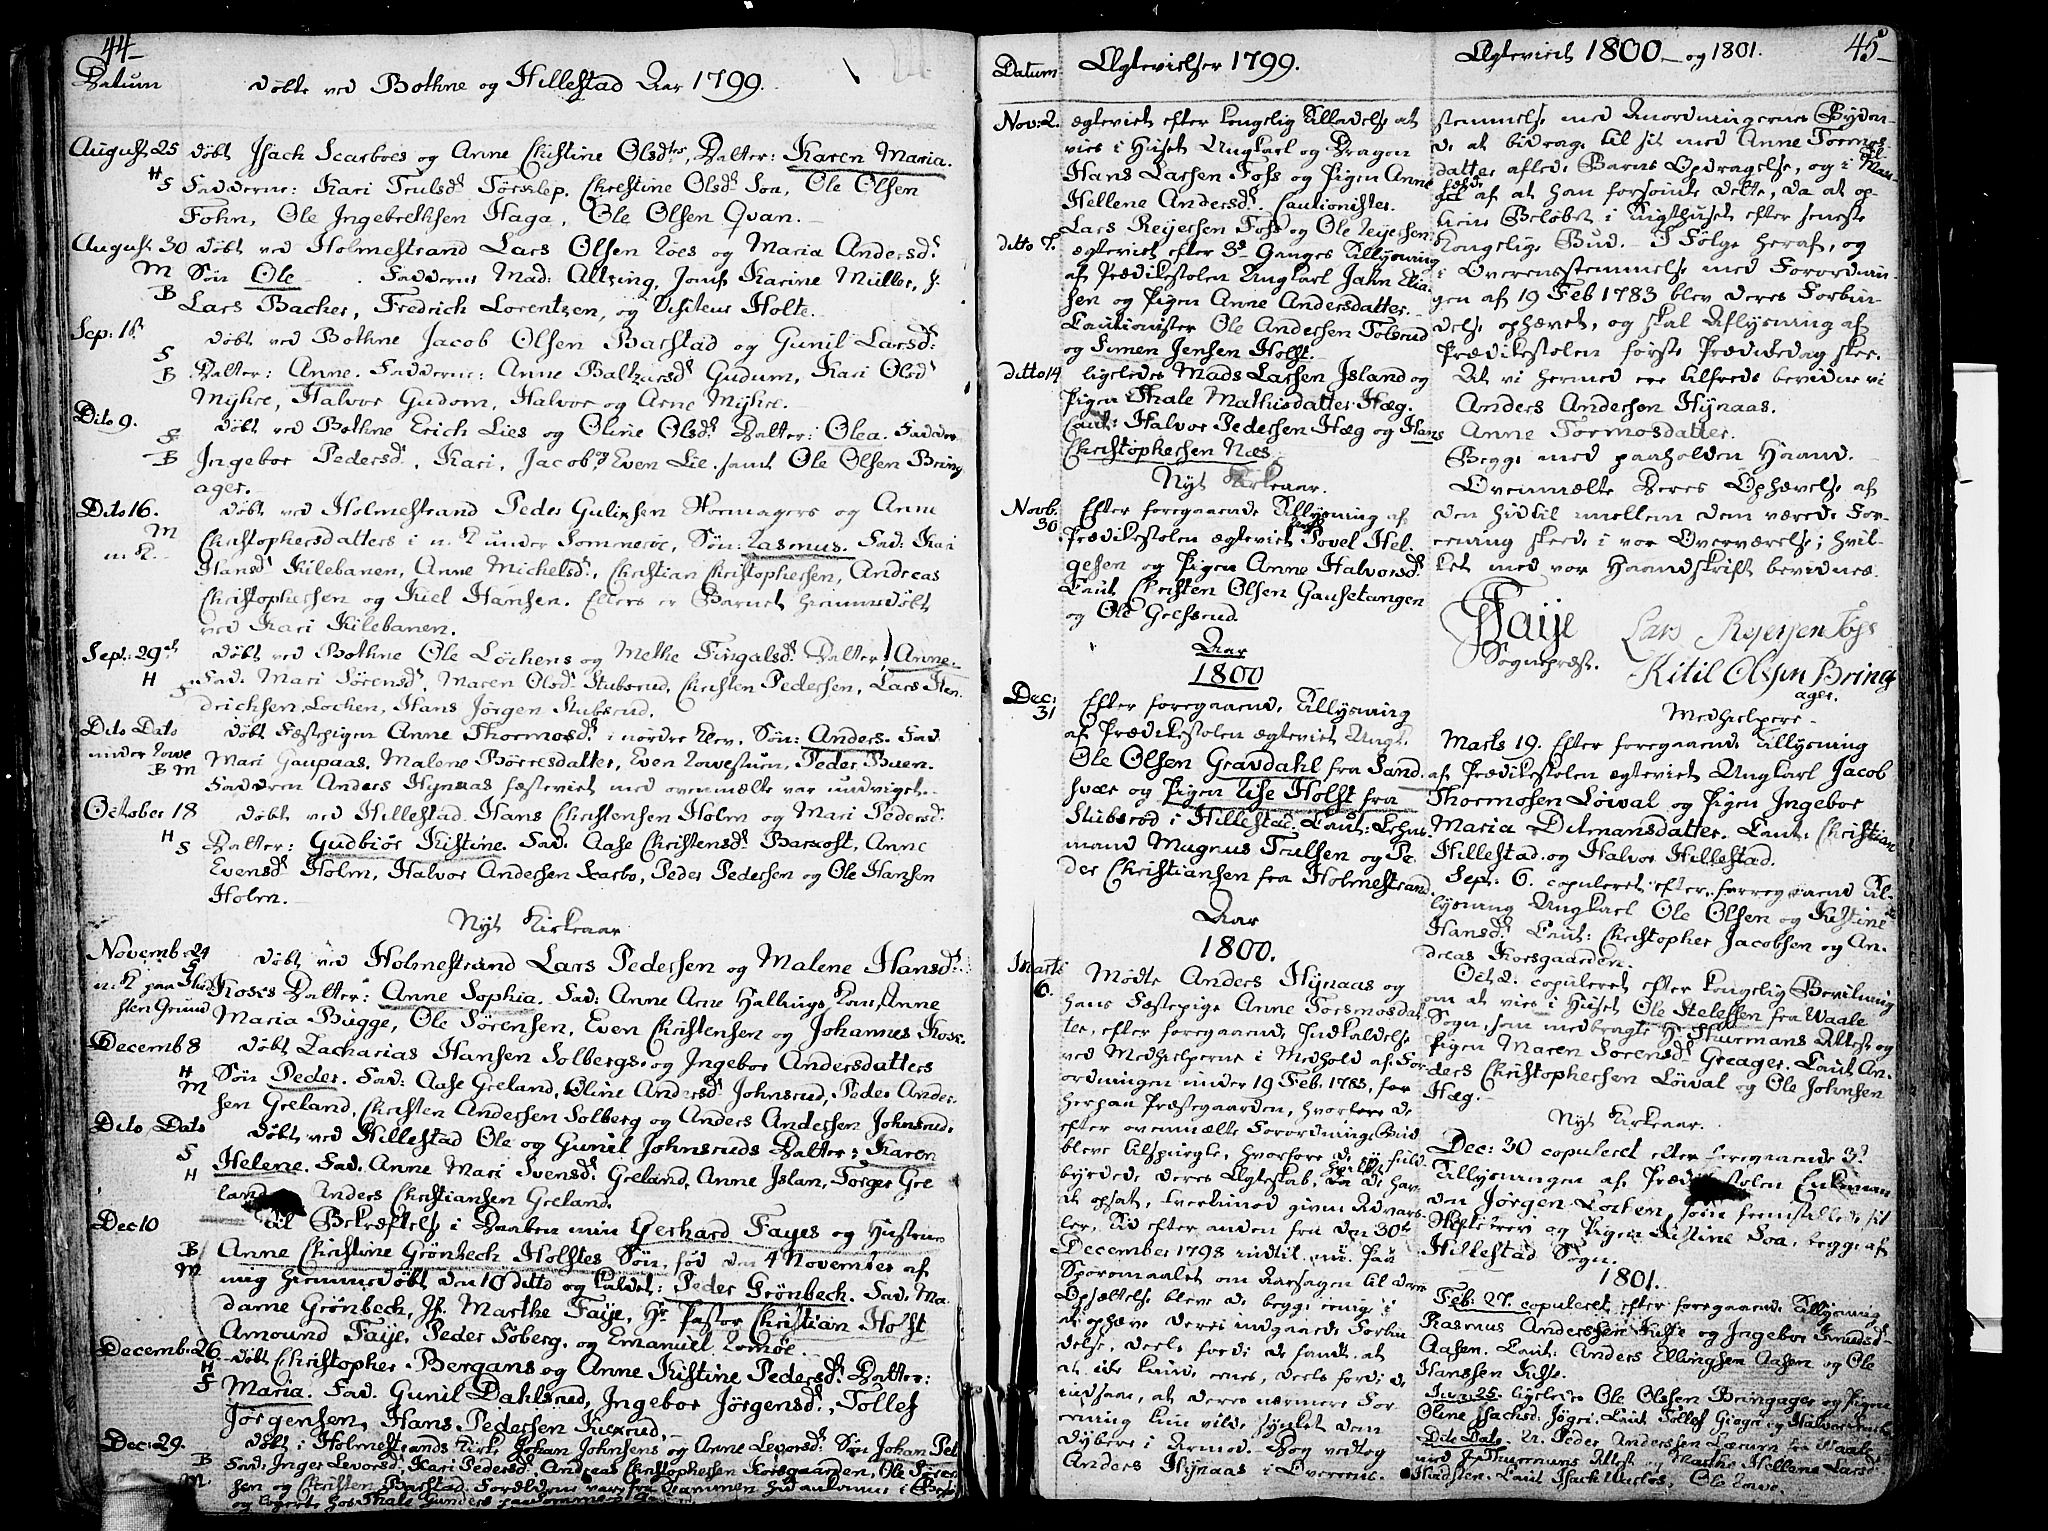 44
Datum
Døbte ved Bothne og Hillestad Aar 1799.
August 25 døbt Isach Scarboes og Anne Christine Olsdtrs Datter: Karen Maria.
H S Fadderne: Kari Trulsd. Tørslep, Christine Olsd. Soa, Ole Olsen
Fohn, Ole Ingebrethsen Haga, Ole Olsen Qvan.
August 30 døbt ved Holmestrand Lars Olsen Roes og Maria Andersd.
M Søn Ole. Fadderne Mad: Altzing, Jomf. Karine Müller, H.
B Lars Bacher, Fredrich Lorentzen, og Visiteur Holte.
Sep: 1st døbt ved Bothne Jacob Olsen Barstad og Gunil Larsd:
S B Datter: Anne. Fadderne: Anne Baltzarsd. Gudum, Kari Olsd
Myhre, Halvor Gudom, Halvor og Arne Myhre.
Dito 9. døbt ved Bothne Erich Lies og Oline Olsd. Datter: Olea. Fadder
S B Ingebor Pedersd., Kari, Jacob og Even Lie, samt Ole Olsen Bring
ager.
Dito 16. døbt ved Holmestrand Peder Gulichsen Skomagers og Anne
M Christophersdatters i n. K under Sommeroe, Søn: Rasmus. Fad: Kari
n. K. Hansd. Kilebanen, Anne Michelsd., Christian Christophersen, Andreas
Christophersen og Kiel Hansen. Ellers er Barnet hiemmedøbt
ved Kari Kilebanen.
Sept: 29 døbt ved Bothne Ole Löchens og Methe Fingalsd. Datter: Anne.
H S Fad: Mari Sørensd., Maren Olsd. Stubsrud, Christen Pedersen, Lars Hen
drichsen Lochen, Hans Jørgen Stubsrud.
Dito Dato døbt Fæstepigen Anne Thormosd. i nordre Klev. Søn: Anders. Fad
under Rowe Mari Gaupaas, Malene Börresdatter, Even Rowestuen, Peder Buen.
B M Fadderen Anders Hynaas fæsteviet med ovenmælte var undviget.
October 18 døbt ved Hillestad Hans Christensen Holm og Mari Pedersd.
H S Datter: Gudbiör Kistine. Fad: Aase Christensd. Barkost, Anne
Evensd. Holm, Halvor Andersen Scarbo, Peder Pedersen og Ole Hansen
Holm.
Nyt Kirkeaar
Novemb: 24 døbt ved Holmestrand Lars Pedersen og Malene Hansd.
S n. K paa Hvid Koses Datter: Anne Sophia. Fad: Anne Arne Hallings Kone, Anne
sten Grund Maria Bugge, Ole Sørensen, Even Christensen og Johannes Kose.
Decemb 8 døbt Zacharias Hansen Solbergs og Ingebor Andersdatters
H M Søn Peder. Fad: Aase Greland, Oline Andersd. Johnsrud, Peder Ander
sen Greland, Christen Andersen Solberg og Anders Andersen Johnsrud.
Dito Dato døbt ved Hillestad Ole og Gunil Johnsruds Datter: Karen
S H Helene. Fad. Anne Mari Svensd. Greland, Anne Islan, Torger Gre
land, Anders Christiansen Greland.
Dec 10 til Bekræftelse i Daaben min Gerhard Fayes og Hustrue
B M Anne Christine Grönbech Holstes Søn, fød den 4 November af
mig hiemmedøbt den 10 ditto og kaldet: Peder Grönbech. Fad: Ma
dame Grönbech, Jf. Marthe Faye, Hr Pastor Christian Holst
Amound Faye, Peder Soberg, og Emanuel Romøe.
Decemb: 26 døbt Christopher Bergans og Anne Kistine Pedersd. Datter:
H S Maria. Fad. Gunil Dahlsrud, Ingebor Jørgensd., Tollef
Jørgensen, Hans Pedersen Kiexrud.
Dec: 29. døbt i Holmestrands Kirke Johan Johnsens og Anne Levorsd. Søn Johan Pet
B Fad: Inger Levorsd., Kari Pedersd. Andreas Christophersen Korsgaarden, Ole Sören
M sen og Christen Barstad. Forældrene vare fra Drammen hid ankomne i Besøg
og logerte hos Thale Gunders
Datum Ægtevielser 1799.
Nov: 2. ægteviet efter kongelig Tilladelse at
vies i Huset Ungkarl og Dragon
Hans Larsen Foss og Pigen Anne
Hellene Andersd. Cautionister.
Lars Reyersen Foss og Ole Reyersen.
ditto 7. ægteviet efter 3de Ganges Tillysning
af Prædikestolen Ungkarl Jahn Elia
sen og Pigen Anne Andersdatter.
Cautionister Ole Andersen Tolsrud
og Simen Jensen Holst.
ditto 14 ligeledes Mads Larsen Island og
Pigen Thale Mathisdatter Hæg.
Caut: Halvor Pedersen Hæg og Hans
Christophersen Næs.
Nyt Kirkeaar.
Novb. 30 Efter foregaaende Tillysning af
Prædikestolen ægteviet Povel Hel
gesen og Pigen Anne Halvorsd.
Caut Christen Olsen Gausetangen
og Ole Grefsrud.
Aar
1800
Dec: 31 Efter foregaaende Tillysning
af Prædikestolen ægteviet Ungk.
Ole Olsen Gravdahl fra Sand
svær og Pigen Lise Holst fra
Stubsrød i Hillestad. Caut: Lehns
mand Mugnus Trulsen og Pe
der Christiansen fra Holmestrand.
Aar
1800.
Marts 6. Mødte Anders Hynaas og
hans Fæstepige Anne Tormosdat
ter, efter foregaaende Indkaldelse
ved Medhielperne i Medhold af For
ordningen under 19 Feb. 1783, for
her paa Præstegaarden, hvor de
efter ovenmælte Forordnings Bud
bleve tilspurgte, hvorfore de ei fuld
byrdede deres Ægteskab, hvilket de har
de opsat, uagtet given Advars
ler, Tid efter anden fra den 30te
December 1798 indtil nu. Paa
Spörsmaalet om Aarsagen til deres
Opsættelse bleve de begge enige i
at ophæve deres indgaaede Forbin
delse, deels fordi de fandt at
de ikke kunde enes, deels fordi de
indsaae, at deres nærmere For
eening kun vilde synket dem
dybere i Armod. Dog vedtog
Anders Hynaas i Overeens
Ægteviet 1800 og 1801. 45
stemmelse med Anordningernes Byden
de at bidrage til sit med Anne Tormos
datter aflede Barns Opdragelse, og i Man
gel af at han forsømte dette, da at op
tiene Beløbet i Tugthuset efter seneste
kongelige Bud. I Følge heraf, og
i Overensstemmelse med Forordnin
gen af 19 Feb 1783 blev deres Forbin
delse ophævet, og skal Aflysning af
Prædikestolen første Prædikedag skee.
At vi hermed ere tilfreds bevidne vi
Anders Andersen Hynaas.
Anne Tormosdatter.
Begge med paaholden Haand.
Ovenmælte Deres Ophævelse af
den hidtil imellem dem værede For
eening skede i vor Overværelse; hvil
ket med vor Haandskrift bevidnes
Faye Lars Reyersen Foss
Sognepræst. Kitil Olssøn Bring
ager.
Medhielpere
Marts 19. Efter foregaaende Tillysning
af Prædikestolen ægteviet Ungkarl Jacob
Thormosen Löwal og Pigen Ingebor
Maria Ditmansdatter. Caut: Christian
Hillestad og Halvor Hillestad.
Sept: 6. copuleret efter foregaaende Til
lysning Ungkarl Ole Olsen og Kistine
Hansd. Caut: Christopher Jacobsen og An
dreas Korsgaarden.
Oct 2. copuleret efter kongelig Bevilning
om at vies i Huset Ole Stelefsen fra Waale
Sogn, som medbragte Hr Thurmans Attest og
Pigen Maren Sørensd. Greager. Caut An
ders Christophersen Löwal og Ole Johnsen
Hæg.
Nyt Kirkeaar.
Dec: 30 copuleret efter foregaaende 3de
Tillysninger af Prædikestolen Enkeman
den Jørgen Lochen, som fremstillede sit
Skiftebrev og Pigen Kistine Soa, begge af
Hillestad Sogn.
1801.
Feb: 27. copuleret efter foregaaende Tillysning
Rasmus Anderssen Kisse og Ingebor Knudsd.
Aasen. Caut: Anders Ellingsen Aasen og Ole
Hanssen Kisse.
Jun. 25. ligeledes Ole Olssen Bringager og Pigen
Oline Isachsd. Jögri. Caut Tollef Gioga og Halvor
Dito Dato. U. Peder Anderssen Lærum fra Waale
med Hr Thurmans Attest og Marthe Hellene Larsd.
Hvidsten. Caut Isach Ole